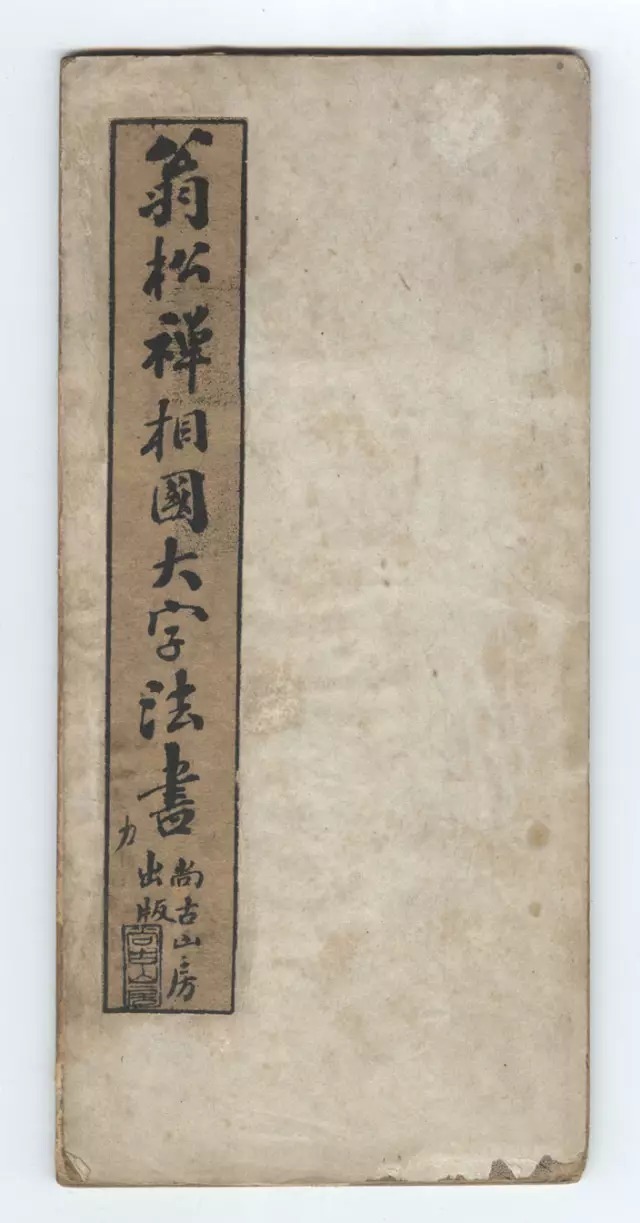 翁松禪相國大字法書
力
尚古山房
出版
尚古山房